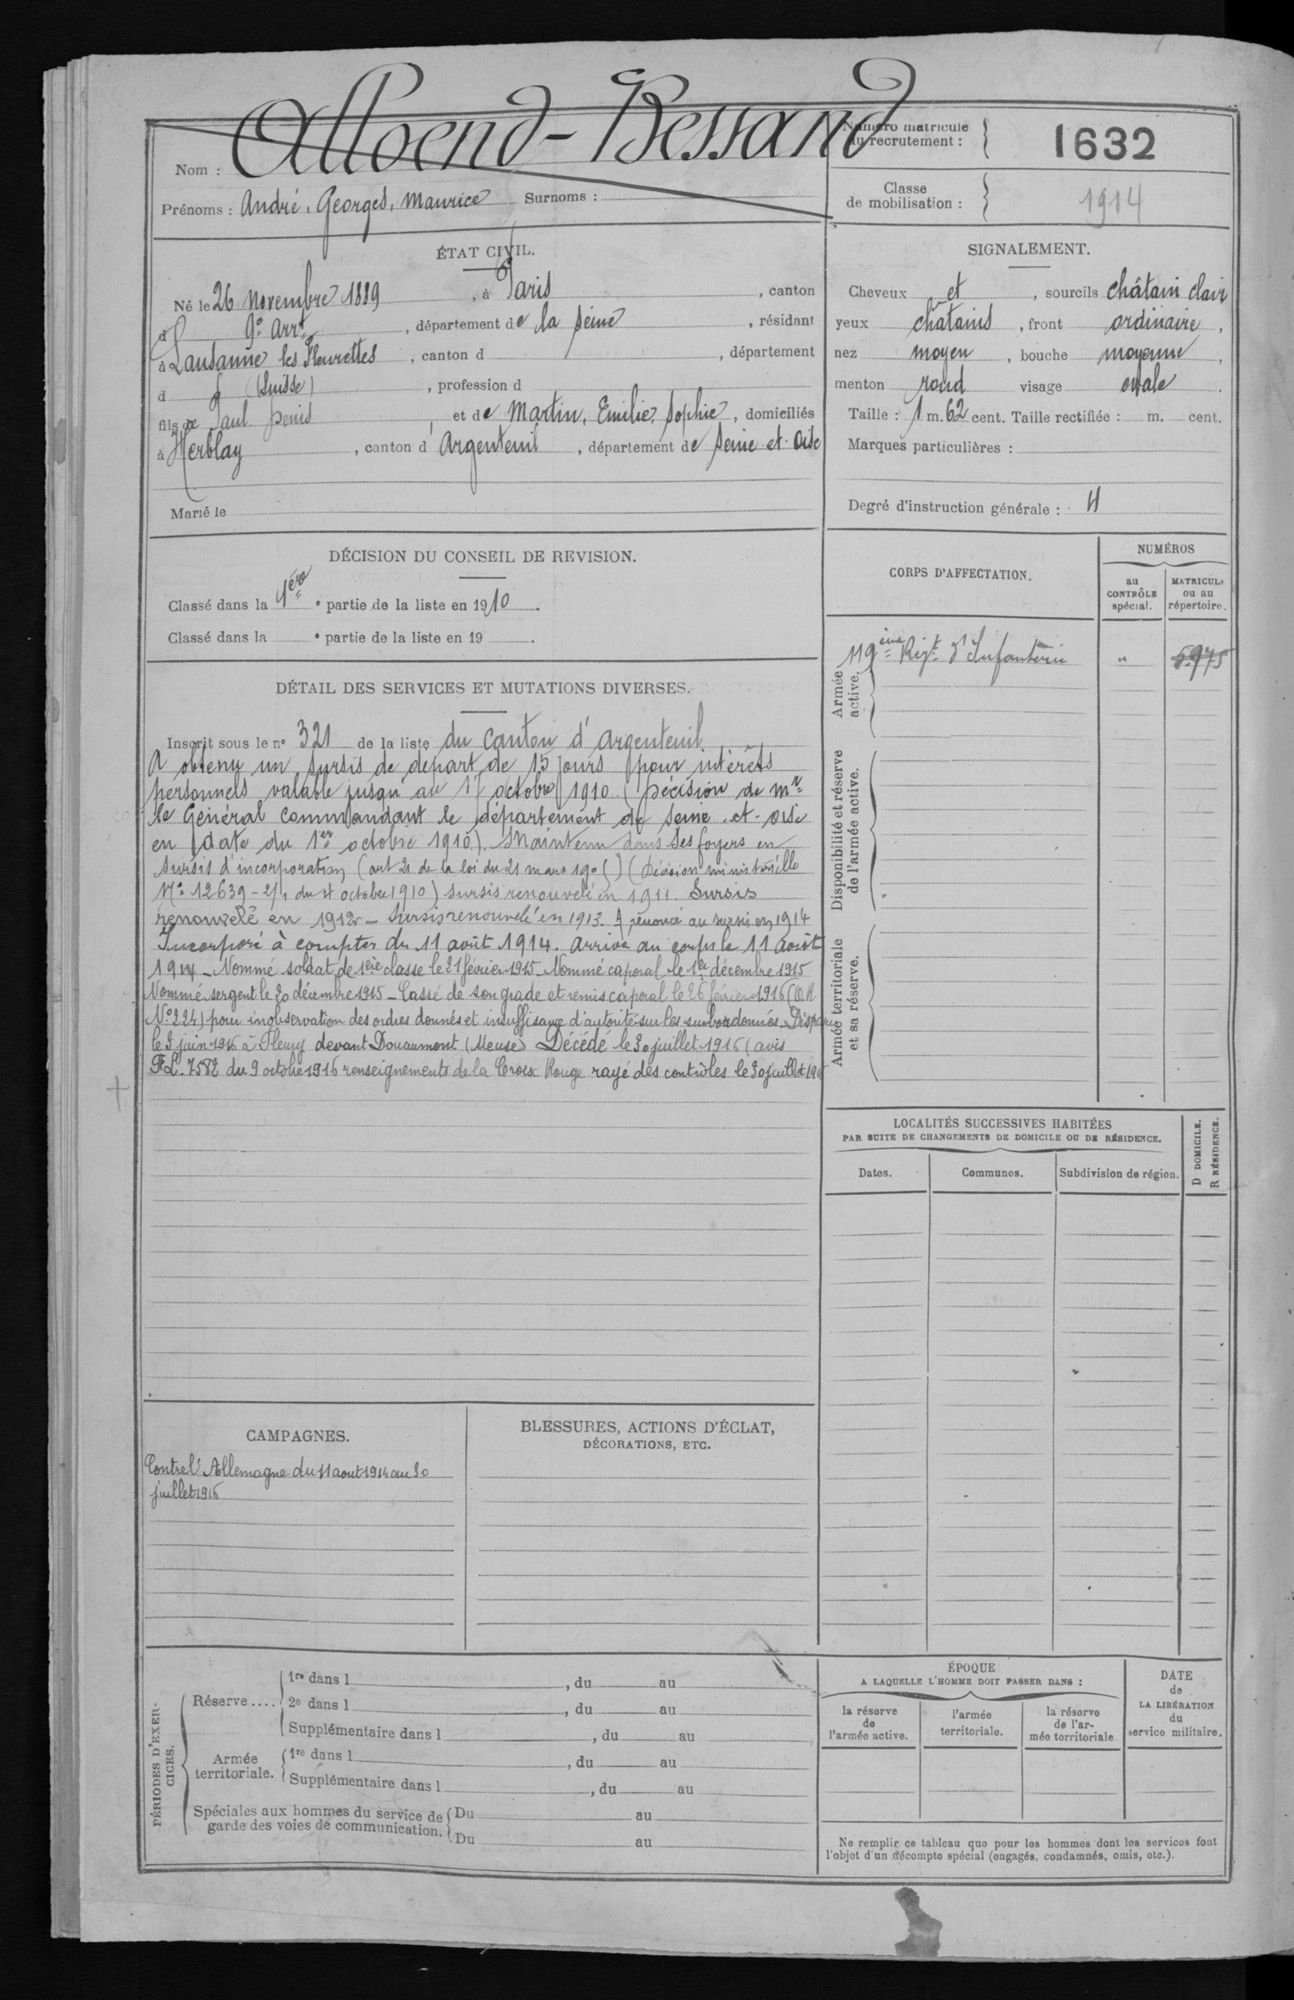 Nom : Alloend-Bessand
Prénoms : André, Georges, Maurice Surnoms :
Numéro matricule
du recrutement : 1632
Classe
de mobilisation : 1914
ÉTAT CIVIL.
Né le 26 Novembre 1889, à Paris, canton
d 9e Arrt, département de la Seine, résidant
à Lausanne les Fleurettes, canton d , département
d (Suisse), profession d
fils de Paul Denis et de Martin, Emilie, Sophie, domiciliés
à Herblay, canton d'Argenteuil, département de Seine et Oise
Marié le
SIGNALEMENT.
Cheveux et, sourcils châtain clair
yeux châtains, front ordinaire,
nez moyen, bouche moyenne,
menton rond visage ovale.
Taille : 1 m. 62 cent. Taille rectifiée : m. cent.
Marques particulières :
Degré d'instruction générale : 4
DÉCISION DU CONSEIL DE REVISION.
Classé dans la 1ère partie de la liste en 1910.
Classé dans la e partie de la liste en 19 .
DÉTAIL DES SERVICES ET MUTATIONS DIVERSES.
Inscrit sous le no 321 de la liste du canton d'Argenteuil
A obtenu un sursis de départ de 15 jours pour intérêts
personnels valable jusqu'au octobre 1910 (Décision de Mr
le Général commandant le département de Seine-et-Oise
en date du 1er octobre 1910). Maintenu dans ses foyers en
sursis d'incorporation (art 21 de la loi du 21 mars 1905) (Décision ministérielle
No 12639- du 4 octobre 1910) Sursis renouvelé en 1911. Sursis
renouvelé en 1912 - Sursis renouvelé en 1913. A renoncé au sursis en 1914
Incorporé à compter du 11 août 1914. arrivé au corps le 11 août
1914 - Nommé soldat de 1ère classe le 21 février 1915 - Nommé caporal le 1er décembre 1915
Nommé sergent le 20 décembre 1915 - Cassé de son grade et remis caporal le 26 février 1916 (O.R
No 224) pour inobservation des ordres donnés et insuffisance d'autorité sur les subordonnés - Disparu
le 3 juin 1916 à Fleury devant Douaumont (Meuse) Décédé le 30 juillet 1916 (avis
F.L. 7582 du 9 octobre 1916 renseignements de la Croix Rouge rayé des contrôles le 30 juillet 1916
CORPS D'AFFECTATION.
NUMÉROS
au
CONTRÔLE
spécial.
MATRICULE
ou au
répertoire.
Armée
active.
119ème Rgt d'Infanterie " 5975
Disponibilité et réserve
de l'armée active.
Armée territoriale
et sa réserve.
LOCALITÉS SUCCESSIVES HABITÉES
PAR SUITE DE CHANGEMENTS DE DOMICILE OU DE RÉSIDENCE.
Dates.
Communes.
Subdivision de région.
D DOMICILE.
R RÉSIDENCE.
CAMPAGNES.
Contre l'Allemagne du 11 aout 1914 au 30
juillet 1916
BLESSURES, ACTIONS D'ÉCLAT,
DÉCORATIONS, ETC.
PÉRIODES D'EXER-
CICES.
Réserve....
1re dans l , du au
2e dans l , du au
Supplémentaire dans l , du au
Armée
territoriale.
1re dans l , du au
Supplémentaire dans l , du au
Spéciales aux hommes du service de
garde des voies de communication.
Du au
Du au
ÉPOQUE
A LAQUELLE L'HOMME DOIT PASSER DANS :
la réserve
de
l'armée active.
l'armée
territoriale.
la réserve
de l'ar-
mée territoriale
DATE
de
LA LIBÉRATION
du
service militaire.
Ne remplir ce tableau que pour les hommes dont les services font
l'objet d'un décompte spécial (engagés, condamnés, omis, etc.).